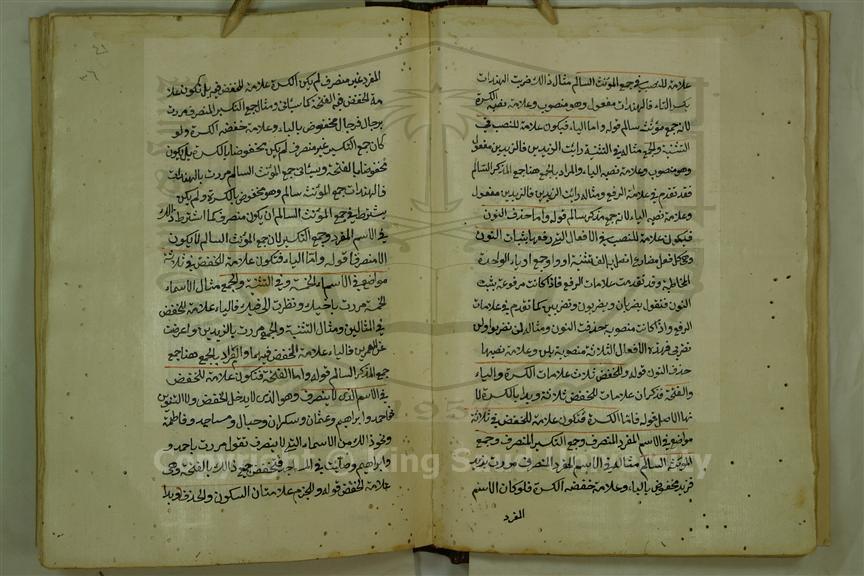 علامة للنصب في جمع المؤنث السالم مثال ذالك ضربت الهندات
بكسر التاء فالهندات مفعول وهو منصوب وعلامة نصبه الكسرة
لانه جمع مؤنث سالم قوله واما الياء فيكون علامة للنصب في
التثنية والجمع مثاله في التثنية رايت الزيدين فالزيدين مفعول
وهو منصوب وعلامة نصبه الياء والمراد بالجمع هنا جمع المذكر السالم
فقد تقدم في علامة الرفع ومثاله رايت الزيدين فالزيدين مفعول
وعلامة نصبه الياء لانه جمع مذكر سالم قوله واما حذف النون
فيكون علامة للنصب في الافعال التي رفعها بثبات النون
وهي كل فعل مضارع اتصل به الف تثنية او واو جمع او ياء الواحدة
المخاطبة وقد تقدمت علامات الرفع فاذا كانت مرفوعة يثبت
النون فتقول يضربان ويضربون وتضربين كما تقدم في علامات
الرفع واذا كانت منصوبة حذفت النون ومثاله لن تضربوا ولن
تضربي فهذه الافعال الثلاثة منصوبة بلن وعلامة نصبها
حذف النون قوله وللخفض ثلاث علامات الكسرة والياء
والفتحة فذكر ان علامات الخفض ثلاثة وبدا بالكسرة لا
نها الاصل قوله فاما الكسرة فتكون علامة للخفض في ثلاثة
مواضع في الاسم المفرد المنصرف وجمع التكسير المنصرف وجمع
المؤنث السالم مثاله في الاسم المفرد المنصرف مررت بزيد
فزيد مخفوض بالباء وعلامة خفضه الكسرة فلو كان الاسم
المفرد
المفرد غير منصرف لم يكن الكسرة علامة للخفض فيه بل تكون علا
مة للخفض فيه الفتحة كما سياتي ومثال جمع التكسير المنصرف مررت
برجال فرجال مخفوض بالباء وعلامة خفضه الكسرة ولو
كان جمع التكسير غير منصرف لم يكن مخفوضا بالكسرة بل يكون
مخفوضا بالفتحة وسياتي جمع المؤنث السالم مررت بالهندات
فالهندات جمع المؤنث سالم وهو مخفوض بالكسرة ولم يكن
يشترط في جمع المؤنث السالم ان يكون منصرف كما اشترط ذالك
في الاسم المفرد وجمع التكسير لان جمع المؤنث السالم لا يكون
الا منصرفا قوله واما الياء فتكون علامة للخفض في ثلاثة
مواضع في الاسماء الخمسة وفي التثنية والجمع مثال الاسماء
الخمسة مررت باخيك ونظرت الى فيك فالياء علامة للخفض
في المثالين ومثال التثنية والجمع مررت بالزيدين واعرضت
عن العمرين فالياء علامة الخفض فيهما والمراد بالجمع هنا جمع
جمع المذكر السالم قوله واما الفتحة فتكون علامة للخفض
في الاسم الذي لا ينصرف وهو الذي لا يدخل الخفض ولا التنوين
فاحمد وابراهيم وعثمان وسكران وحبلى ومساجد وفاطمة
ونحو ذالك من الاسماء التي لا ينصرف تقول مررت باحمد و
وابراهيم وصليت في المساجد فتخفض جميع ذالك بالفتحة وهي
علامة الخفض قوله وللجزم علامتان السكون والحذف وبدا
٣٦
Copyright © King Saud University
1957